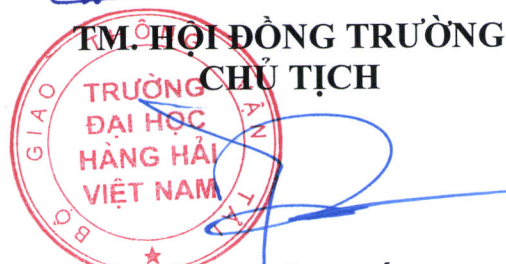 TM. HỘI ĐỒNG TRƯỜNG
CHỦ TỊCH
BỘ GIAO THÔNG VẬN TẢI
TRƯỜNG
ĐẠI HỌC
HÀNG HẢI
VIỆT NAM